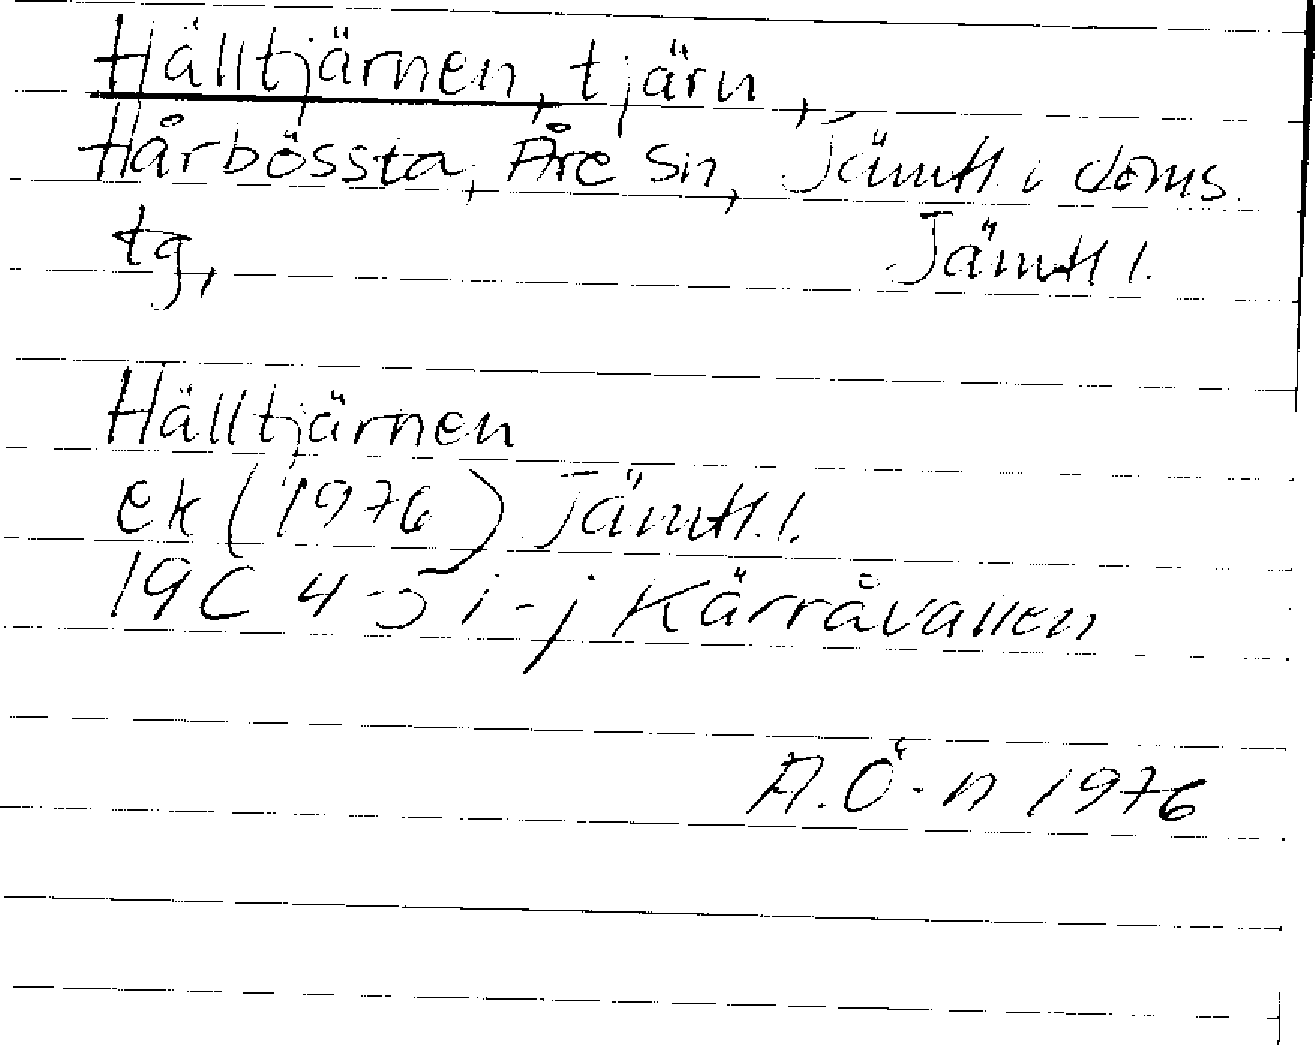 Hälltjärnen, tjärn,
Hårbössta, Åre sn, Jämtl. v doms.
tg, Jämtl l.
Hälltjärnen
ek (1976) Jämtl. l.
19C 4-5 i-j Kärråvallen
A.Ö-n 1976